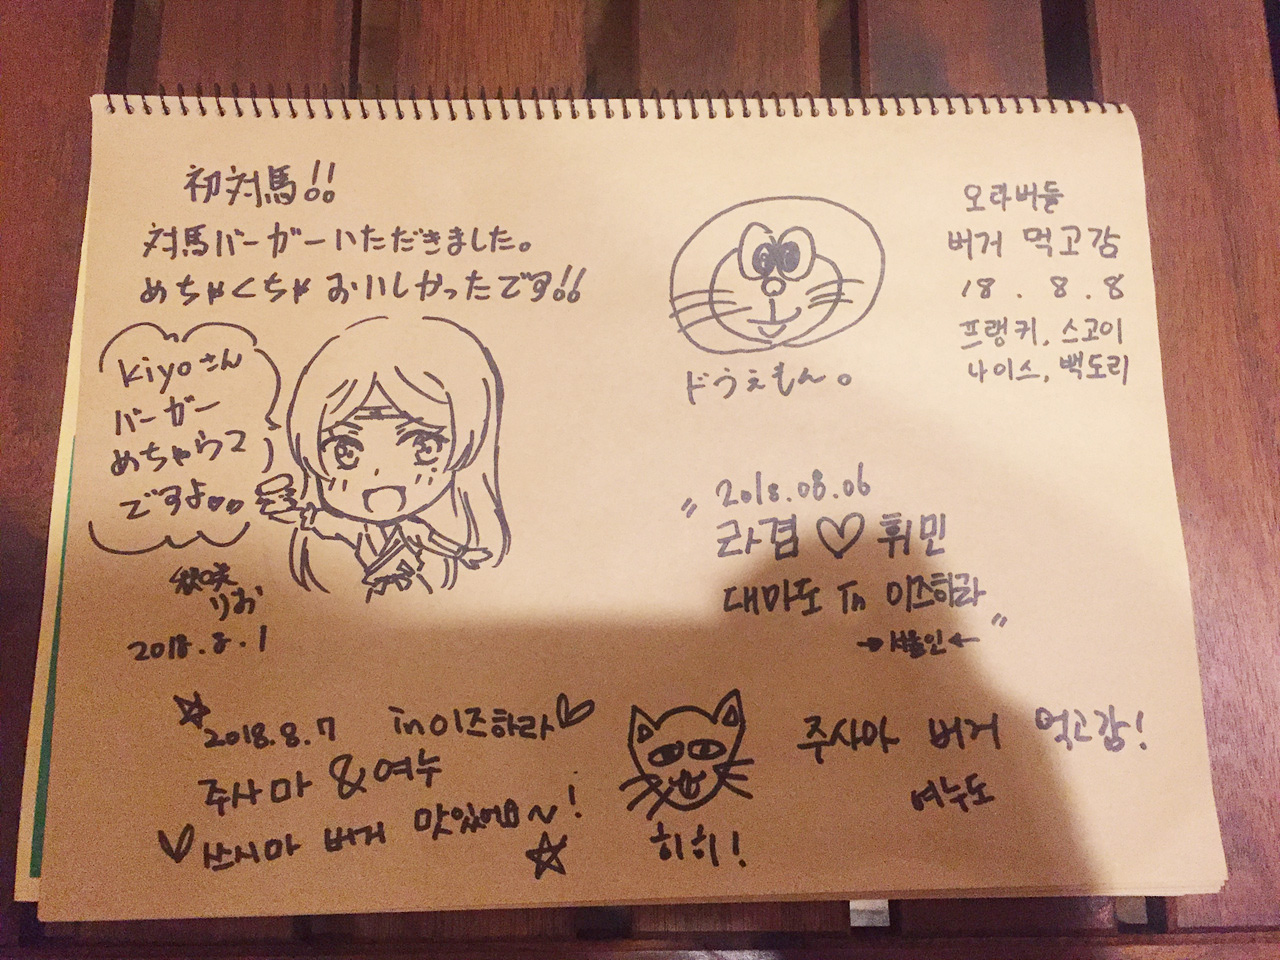 初対馬!!
対馬バーガーいただきました。
めちゃくちゃおいしかったです!!
kiyoさん
バーガー
めちゃウマ
ですよ
秋咲
りお
2018.8.1
ドラえもん。
오라버들
버거 먹고감
18.8.8
프랭키, 스고이
나이스, 빽도리
"2018.08.06
라겸♡휘민
대마도 in 이즈하라"
2018.8.7 in 이즈하라♡
주사마 & 여누
♡쓰시마 버거 맛있어요~!
히히!
주사마 버거 먹고감!
여누도